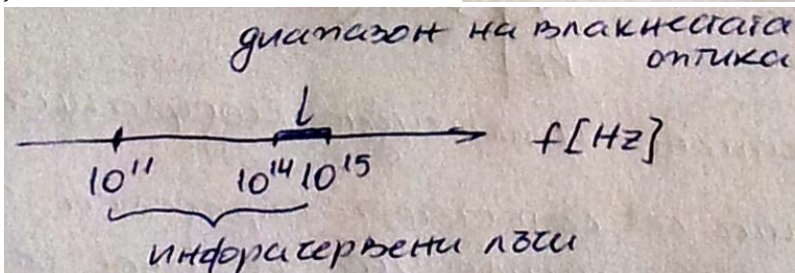 диапазон на влакнестата
оптика
10¹¹ 10¹⁴ 10¹⁵ f[Hz]
инфрачервени лъчи